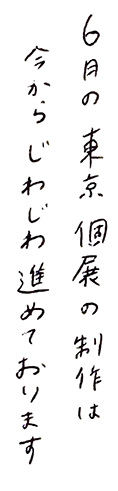 6月の東京個展の制作は
今からじわじわ進めております